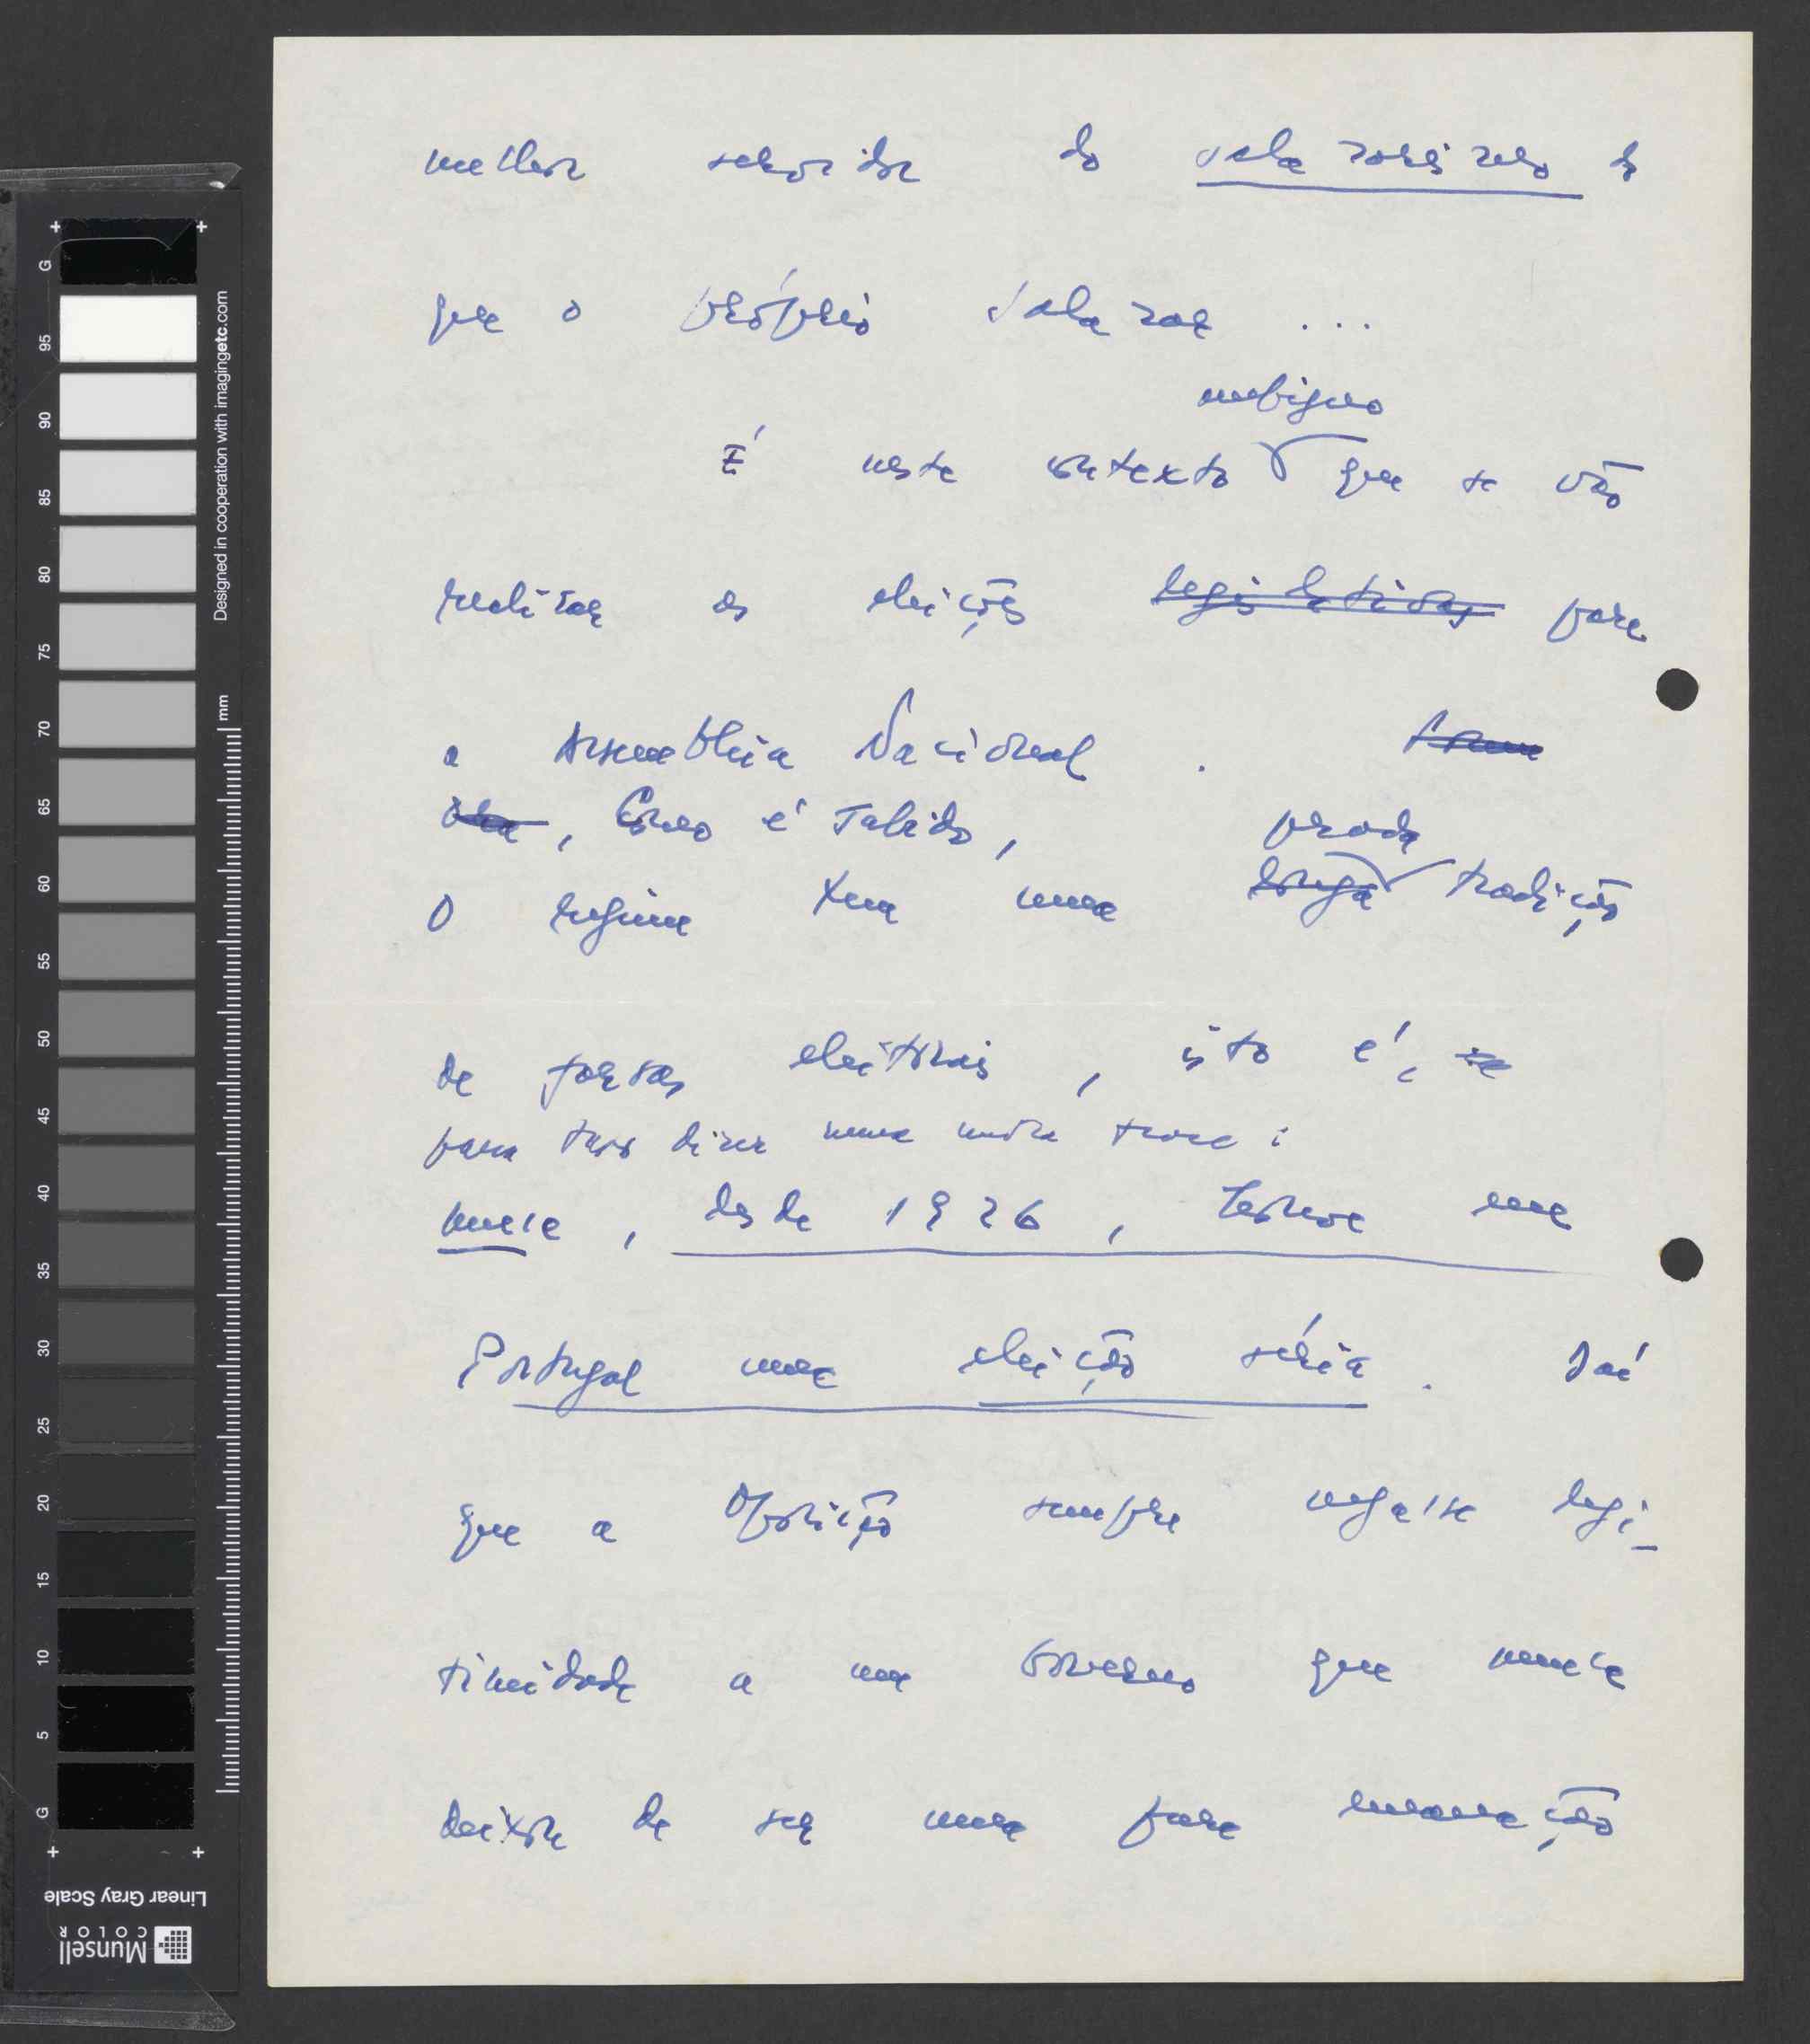 melhor servidor do salazarismo do
que o próprio Salazar ...
ambíguo
É neste contexto que se vão
realizar as eleições legislativas para
a Assembleia Nacional .
Ora, Como é sabido,
pesada
O regime tem uma longa tradição
de farsas eleitorais , isto é,
para tudo dizer numa única frase :
nunca , desde 1926 , houve em
Portugal uma eleição séria . Daí
que a Oposição sempre negasse legi-
timidade a um Governo que nunca
deixou de ser uma pura emanação
G
95
90
85
80
75
70
65
60
55
50
45
40
35
30
25
20
15
10
5
G
mm
Designed in cooperation with imagingetc.com
Linear Gray Scale
Munsell
COLOR